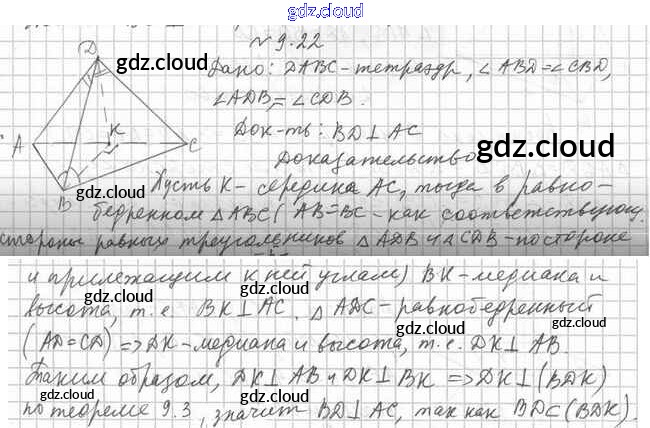 gdz.cloud
№ 9.22
gdz.cloud
Дано: DABC - тетраэдр, ∠ABD = ∠CBD,
∠ADB = ∠CDB.
gdz.cloud
Док-ть: BD ⊥ AC
gdz.cloud
Доказательство
D
A
K
C
B
gdz.cloud
Пусть K - середина AC, тогда в равно-
бедренном △ABC (AB=BC - как соответствующ.
gdz.cloud
стороны равных треугольников △ADB и △CDB - по стороне
и прилежащим к ней углам) BK - медиана и
gdz.cloud
высота, т.е. BK ⊥ AC. △ADC - равнобедренный
gdz.cloud
(AD=CD) => DK - медиана и высота, т.е. DK ⊥ AB.
gdz.cloud
Таким образом, DK ⊥ AB и DK ⊥ BK => DK ⊥ (BDK)
по теореме 9.3, значит BD ⊥ AC, так как BD ⊂ (BDK).
gdz.cloud
gdz.cloud